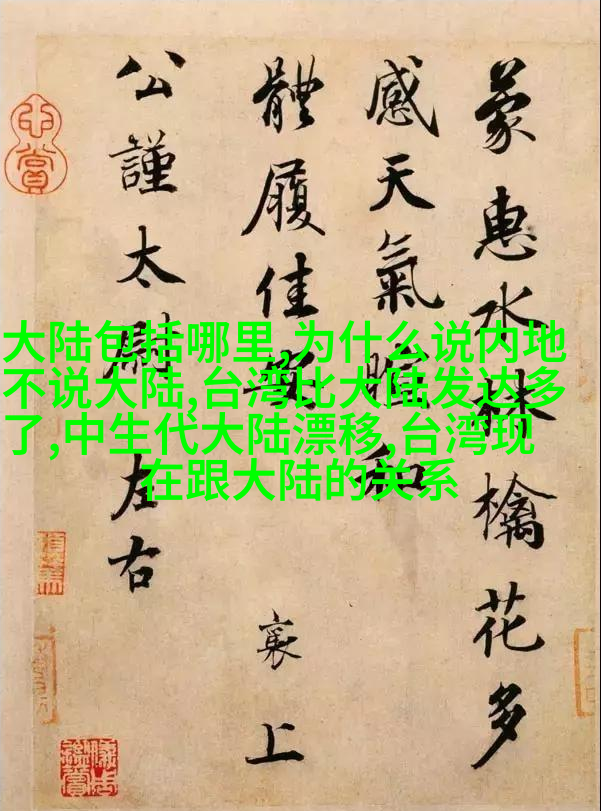 蒙惠水林檎花多
感天氣暄和
體履佳安
襄上
公謹太尉左右
大陆包括哪里,为什么说内地
不说大陆,台湾比大陆发达多
了,中生代大陆漂移,台湾现
在跟大陆的关系